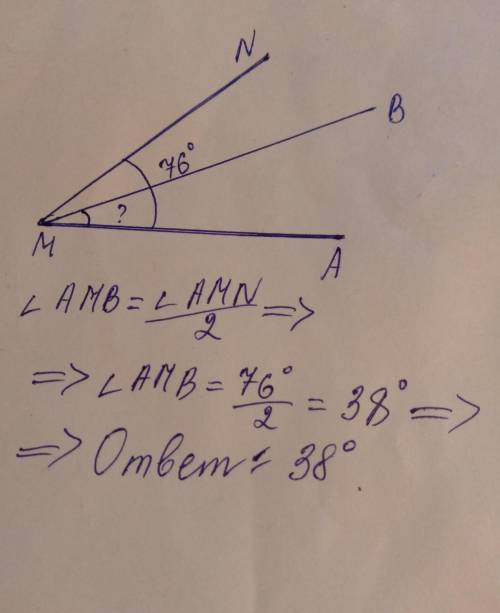 N
B
76°
?
M
A
∠AMB = ∠AMN/2 =>
=> ∠AMB = 76°/2 = 38° =>
=> Ответ: 38°